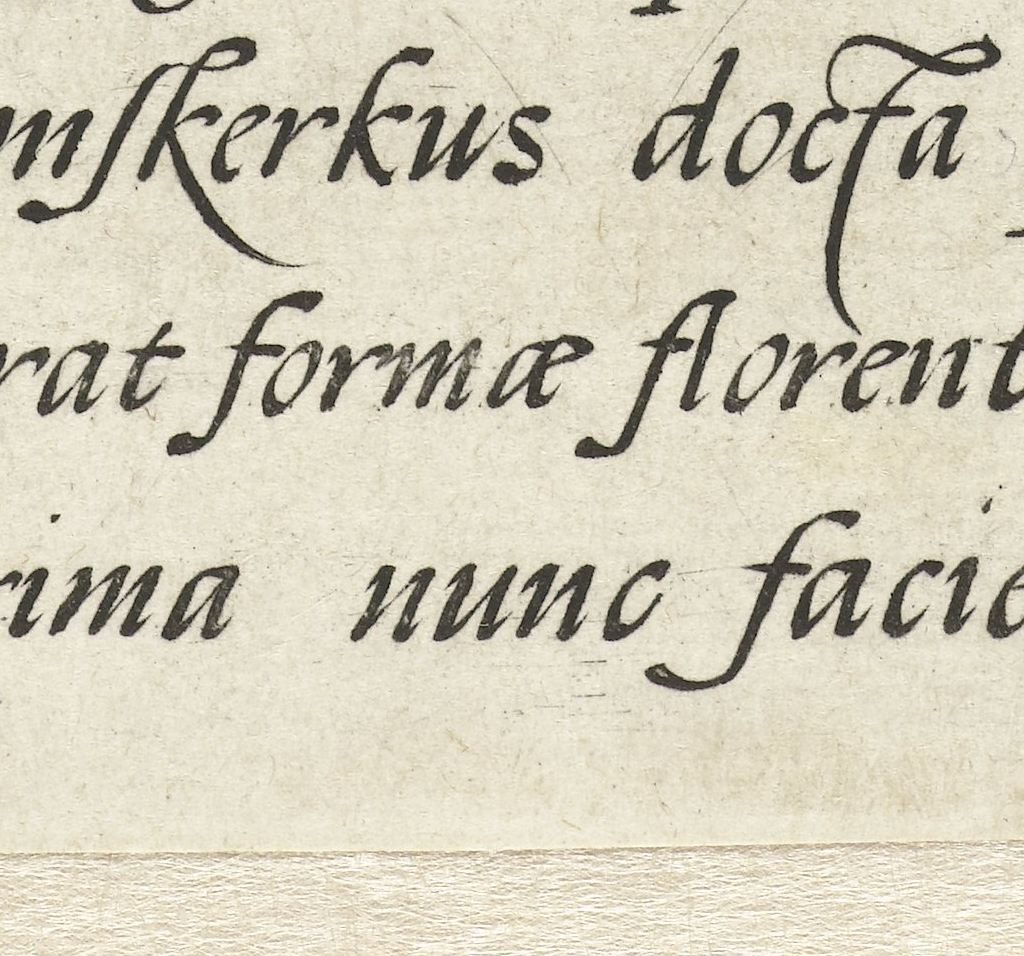 mſkerkus docta
rat formæ florent
rima nunc facie